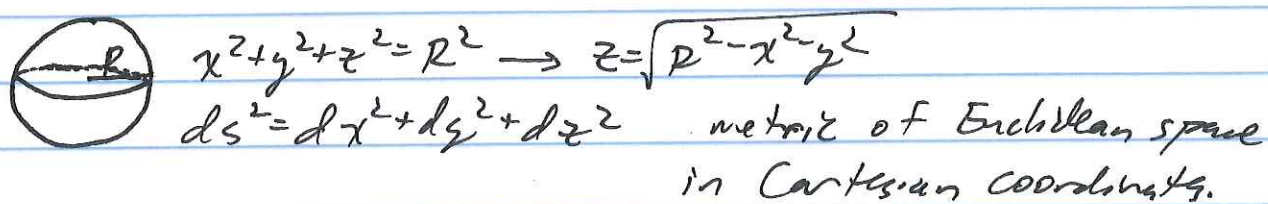 R x²+y²+z²=R² → z=√R²-x²-y²
ds²=dx²+dy²+dz² metric of Euclidean space
in Cartesian coordinates.